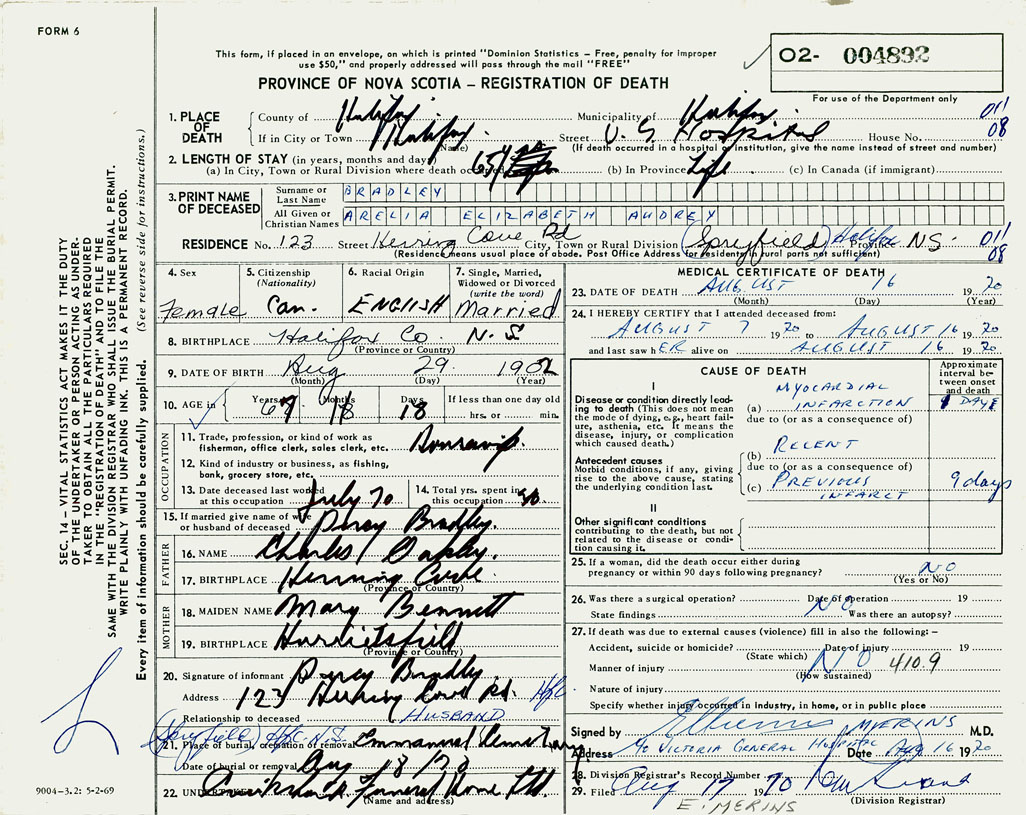 FORM 6
This form, if placed in an envelope, on which is printed "Dominion Statistics – Free, penalty for improper
use $50," and properly addressed will pass through the mail "FREE"
PROVINCE OF NOVA SCOTIA – REGISTRATION OF DEATH
O2- 004892
For use of the Department only
1. PLACE OF DEATH
County of Halifax Municipality of Halifax 011
If in City or Town Halifax Street V. G. Hospital House No. 08
(Name) (If death occurred in a hospital or institution, give the name instead of street and number)
2. LENGTH OF STAY (in years, months and days)
(a) In City, Town or Rural Division where death occurred (b) In Province Life (c) In Canada (if immigrant)
3. PRINT NAME OF DECEASED
Surname or Last Name BRADLEY
All Given or Christian Names ARELIA ELIZABETH AUDREY
RESIDENCE No. 123 Street Herring Cove Rd City, Town or Rural Division (Spryfield) Halifax Province NS. 011
(Residence means usual place of abode. Post Office Address for residents in rural parts not sufficient) 08
4. Sex Female
5. Citizenship (Nationality) Can.
6. Racial Origin ENGLISH
7. Single, Married, Widowed or Divorced (write the word) Married
8. BIRTHPLACE Halifax Co. N. S
(Province or Country)
9. DATE OF BIRTH Aug 29 1902
(Month) (Day) (Year)
10. AGE in Years 67 Months Days 18 If less than one day old
hrs. or min.
OCCUPATION
11. Trade, profession, or kind of work as
fisherman, office clerk, sales clerk, etc.
12. Kind of industry or business, as fishing,
bank, grocery store, etc.
13. Date deceased last worked at this occupation July 70
14. Total yrs. spent in this occupation 50
15. If married give name of wife or husband of deceased Percy Bradley.
FATHER
16. NAME Charles Oakley.
17. BIRTHPLACE Herring Cove
(Province or Country)
MOTHER
18. MAIDEN NAME Mary Bennett
19. BIRTHPLACE Harrietsfield
(Province or Country)
20. Signature of informant Percy Bradley.
Address 123 Herring Cove Rd. Hfx
Relationship to deceased HUSBAND
(Spryfield) Hfx. N.S.
21. Place of burial, cremation or removal Emmanuel Cemetary
Date of burial or removal Aug 18/70
22. UNDERTAKER Funeral Home Ltd.
(Name and address)
MEDICAL CERTIFICATE OF DEATH
23. DATE OF DEATH AUGUST 16 1970
(Month) (Day) (Year)
24. I HEREBY CERTIFY that I attended deceased from:
AUGUST 7 1970 to AUGUST 16 1970
and last saw hER alive on AUGUST 16 1970
CAUSE OF DEATH
Approximate interval between onset and death
I
Disease or condition directly leading to death (This does not mean the mode of dying, e.g., heart failure, asthenia, etc. It means the disease, injury, or complication which caused death.)
(a) MYOCARDIAL INFARCTION
due to (or as a consequence of)
Antecedent causes
Morbid conditions, if any, giving rise to the above cause, stating the underlying condition last.
(b) RECENT
due to (or as a consequence of)
(c) PREVIOUS INFARCT 9 days
II
Other significant conditions
contributing to the death, but not related to the disease or condition causing it.
25. If a woman, did the death occur either during
pregnancy or within 90 days following pregnancy? NO
(Yes or No)
26. Was there a surgical operation? Date of operation 19
State findings NO Was there an autopsy?
27. If death was due to external causes (violence) fill in also the following: –
Accident, suicide or homicide? Date of injury 19
(State which)
Manner of injury NO 410.9
(How sustained)
Nature of injury
Specify whether injury occurred in industry, in home, or in public place
Signed by MERINS M.D.
Address % VICTORIA GENERAL HOSPITAL Date Aug 16 1970
28. Division Registrar's Record Number
29. Filed Aug 17 1970
(Division Registrar)
E. MERINS
SEC. 14 – VITAL STATISTICS ACT MAKES IT THE DUTY
OF THE UNDERTAKER OR PERSON ACTING AS UNDER-
TAKER TO OBTAIN ALL THE PARTICULARS REQUIRED
IN THE "REGISTRATION OF DEATH" AND TO FILE THE
SAME WITH THE DIVISION REGISTRAR WHO SHALL ISSUE THE BURIAL PERMIT.
WRITE PLAINLY WITH UNFADING INK. THIS IS A PERMANENT RECORD.
Every item of information should be carefully supplied. (See reverse side for instructions.)
9004-3.2: 5-2-69